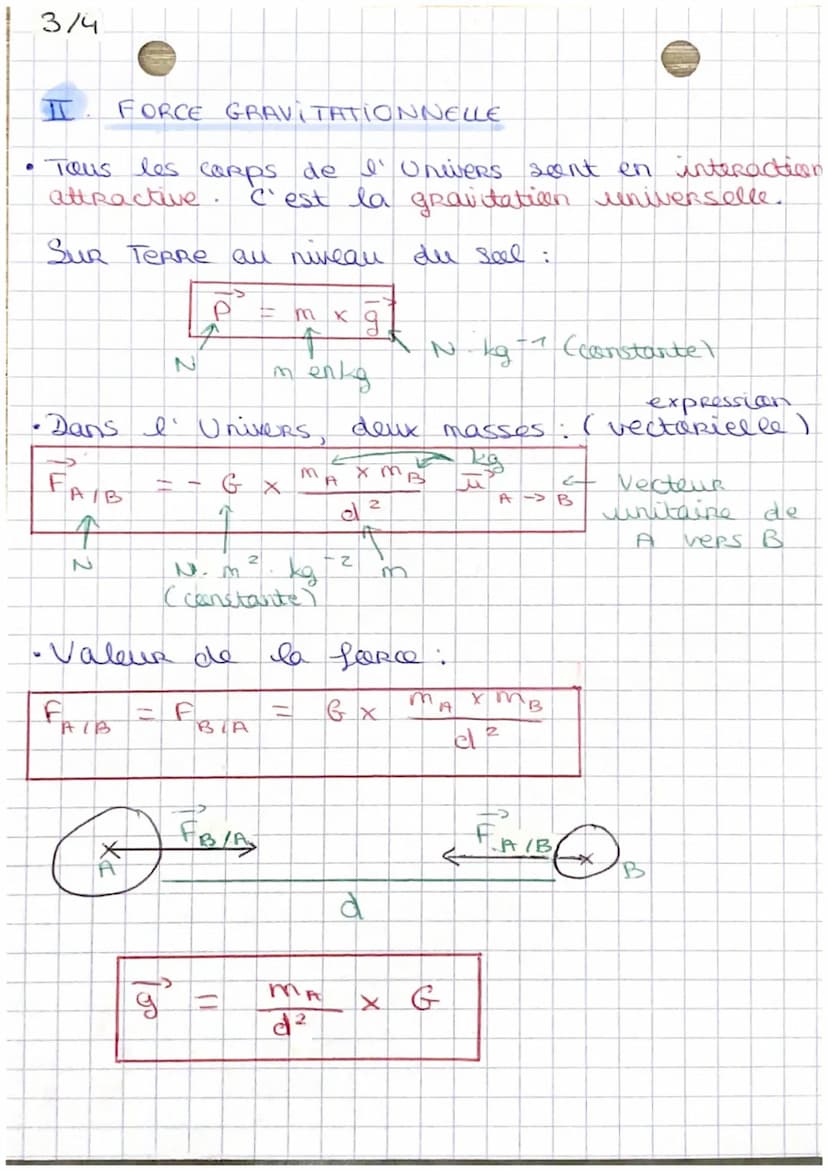 3/4
II. FORCE GRAVITATIONNELLE
• Tous les corps de l'Univers sont en interaction
attractive. C'est la gravitation universelle.
Sur Terre au niveau du sol :
P⃗ = m x g⃗
N
m en kg
N.kg⁻¹ (constante)
• Dans l'Univers, deux masses : (expression
vectorielle)
F⃗ A/B = - G x (mA x mB) / d² u⃗ A → B
kg
← Vecteur
unitaire de
A vers B
N
N.m².kg⁻²
(constante)
m
• Valeur de la force :
F A/B = F B/A = G x (mA x mB) / d²
F⃗ B/A
F⃗ A/B
A
B
d
g⃗ = mA / d² x G